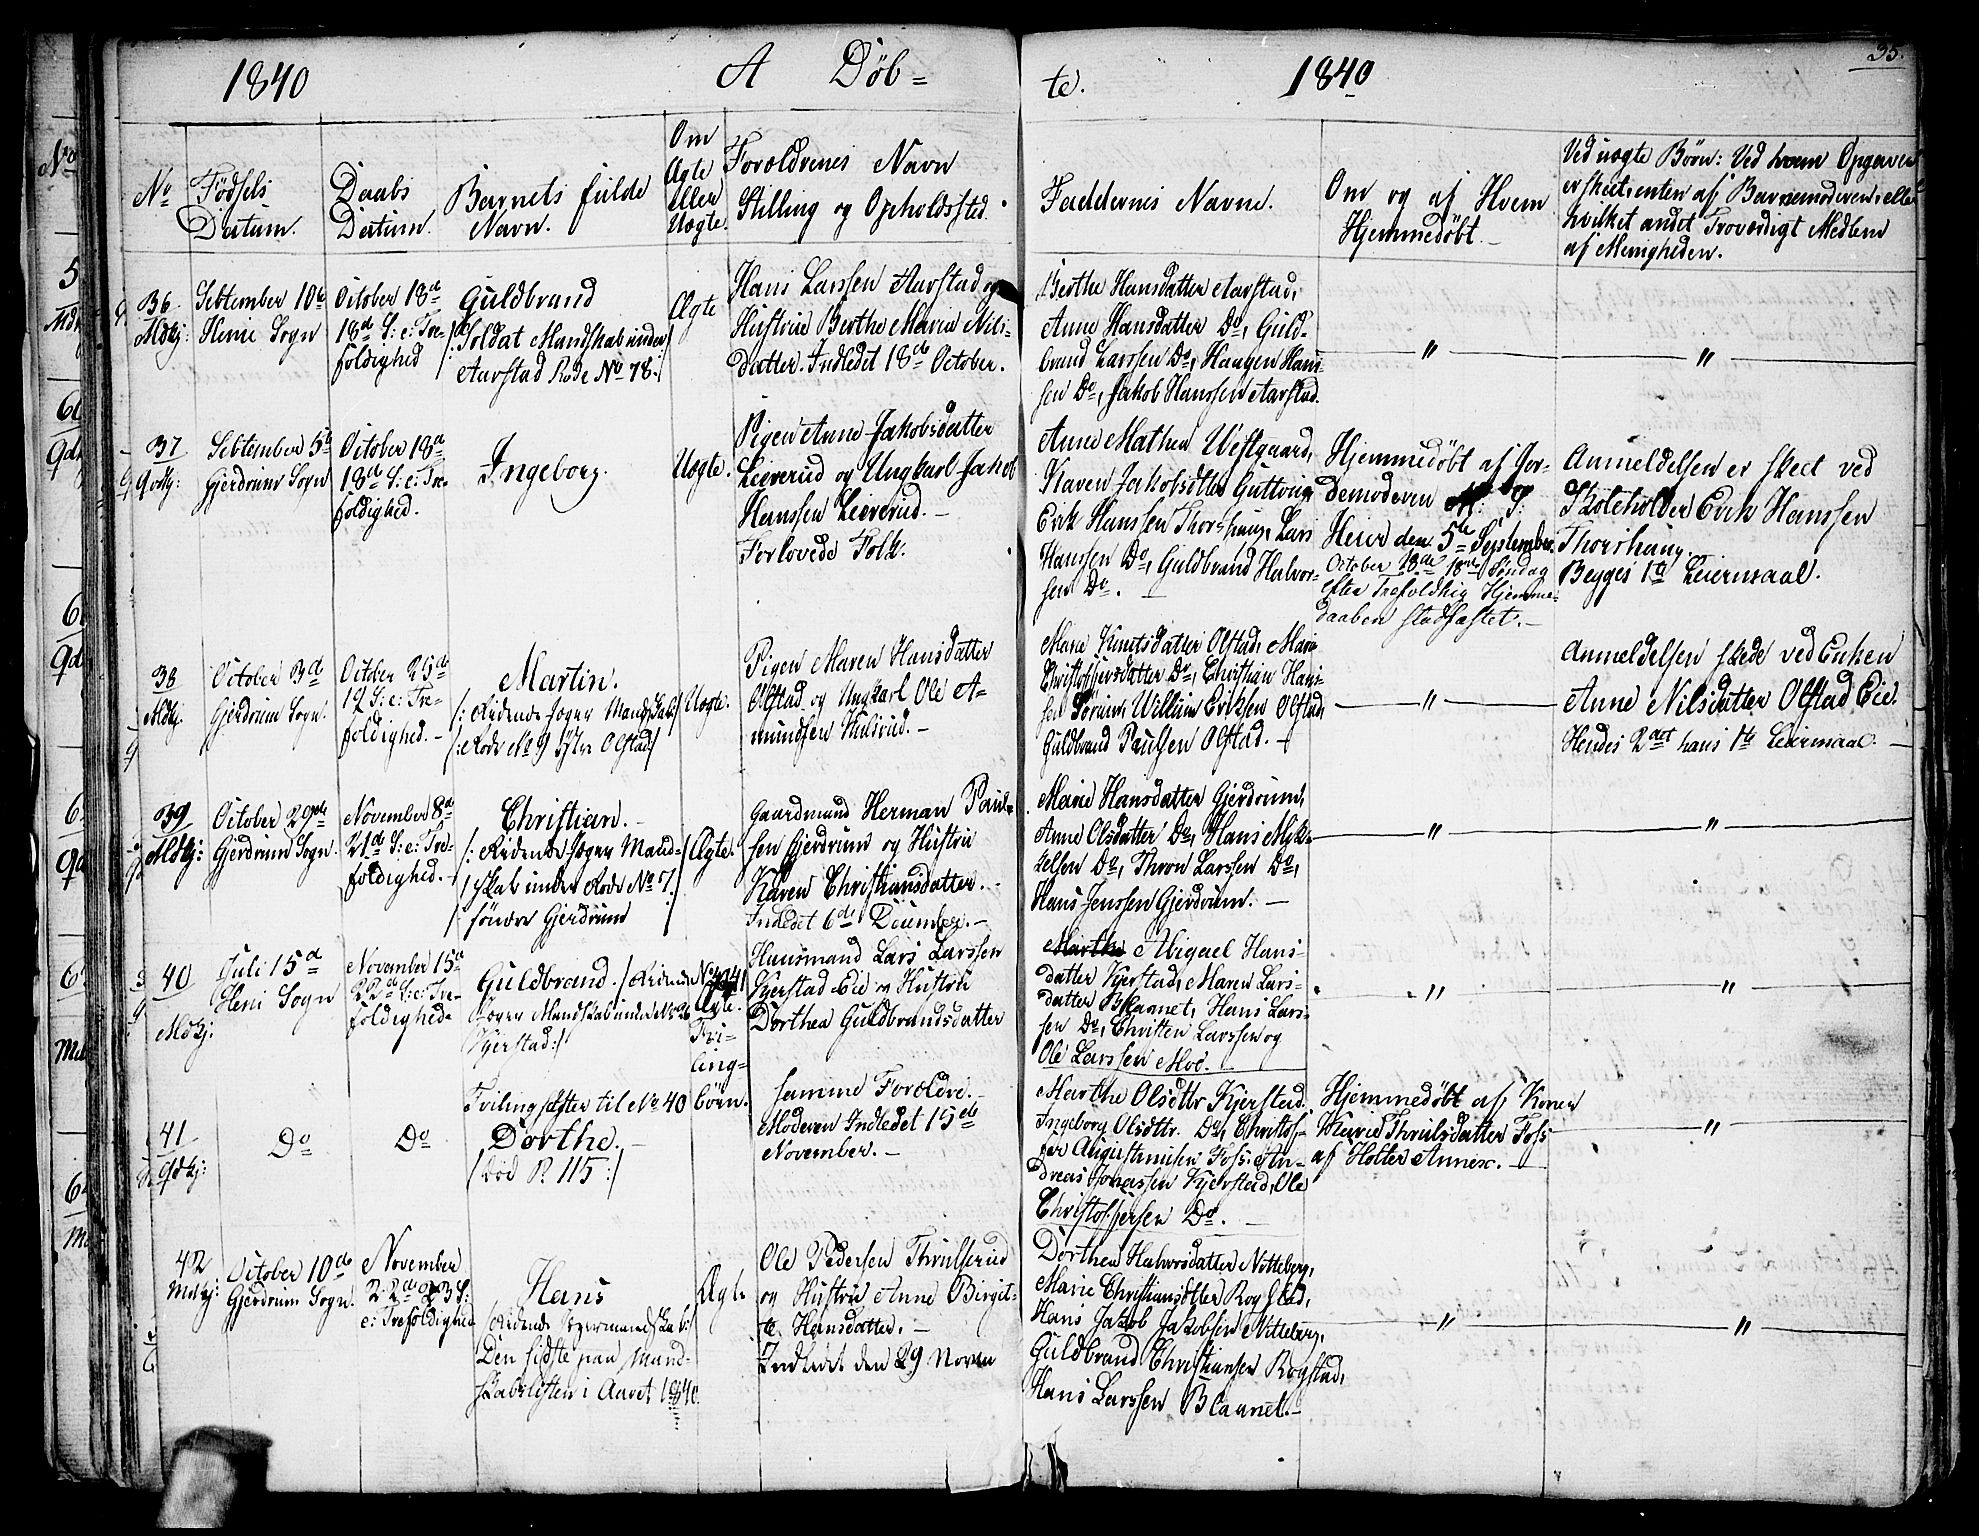 1840
A Döb=
te.
1840
35.
No
Födsels
Datum.
Daabs
Datum.
Barnets fulde
Navn.
Om
Ægte
eller
Uægte.
Forældrenes Navn
Stilling og Opholdssted.
Faddernes Navne.
Om og af Hvem
Hjemmedöbt.
Ved uægte Börn: Ved hvem Opgaven
er skeet, enten af Barnemoderen, eller
hvilket andet Troværdigt Medlem
af Menigheden.
36
Mdkj:
September 10de
Heni Sogn
October 18de
18de S: e: Tre-
foldighed
Guldbrand
/:Soldat Mandskab under
Aarstad Rode No 78:/
Ægte
Hans Larssen Aarstad og
Hustrue Berthe Maren Nils-
datter. Indledet 18de October.
Berthe Hansdatter Aarstad,
Anne Hansdatter Do, Guld-
brand Larssen Do, Haagen Hans-
sen Do, Jakob Hanssen Aarstad.
"
"
37
Qvkj:
September 5te
Gjerdrum Sogn
October 18de
18de S: e: Tre-
foldighed.
Ingeborg.
Uægte.
Pigen Anne Jakobsdatter
Leererud og Ungkarl Jakob
Hanssen Leererud.
Forlovede Folk.
Anne Mathea Westgaard,
Karen Jakobsdtter Guttorm
Erik Hanssen Thorshaug, Lars
Hanssen Do, Guldbrand Halvor-
sen Do.
Hjemmedöbt af Jor-
demoderen
Heier den 5te September.
October 18de 18de Söndag
efter Trefoldhig Hjemme-
daaben stadfæstet.
Anmeldelsen er skeet ved
Skoleholder Erik Hanssen
Thorshaug.
Begges 1te Leiermaal.
38
Mdkj.
October 3de
Gjerdrum Sogn.
October 25de
19 S: e: Tre-
foldighed.
Martin.
/:Ridende Jæger Mandskab:/
/:Rode No 9 Olstad/
Uægte.
Pigen Maren Hansdatter
Olstad og Ungkarl Ole A-
mundsen Hulsrud.
Marie Knutsdatter Olstad, Maria
Christophersdatter Do, Christian Han-
sen Sörum, Willum Eriksen Olstad,
Guldbrand Paulsen Olstad.
"
Anmeldelsen skede ved Enken
Anne Nilsdatter Olstad Eie.
Hendes 2det hans 1te Leiermaal.
39
Mdkj:
October 29de
Gjerdrum Sogn.
November 8de
21de S: e: Tre-
foldighed.
Christian.
/:Ridende Jæger Mand-
skab under Rode No 7.
söndre Gjerdrum
Ægte.
Gaardmand Herman Paul-
sen Gjerdrum og Hustrue
Karen Christiansdatter.
Indledet 6de December.
Marie Hansdatter Gjerdrum,
Anne Olsdatter Do, Hans Myk-
kelsen Do, Thron Larssen Do,
Hans Jenssen Gjerdrum.
"
"
40
Mdkj:
Juli 15de
Heni Sogn
November 15de
22de S: e: Tre-
foldighed.
Guldbrand. /:Ridende
Jæger Mandskab under No 26
Kjerstad:/
No 40 41
Ægte.
Tvi-
ling-
börn.
Huusmand Lars Larssen
Kjerstad Eie og Hustrue
Dorthea Guldbrandsdatter
Abigael Hans-
datter Kjerstad, Maren Lars-
datter Blaanet, Hans Lars-
sen Do, Christen Larssen og
Ole Larssen Moe.
"
"
41
Qvkj:
Do
Do
Tvilingsöster til No 40
Dorthe.
/död P. 115:/
samme Forældre.
Moderen Indledet 15de
November.
Marthe Olsdttr Kjerstad,
Ingeborg Olsdttr. Do, Christof-
fer Augustinusen Foss. An-
dreas Jonassen Kjerstad, Ole
Christophersen Do.
Hjemmedöbt af Konen
Marie Thrulsdatter Foss
af Holter Annex.
"
42
Mdkj:
October 10de
Gjerdrum Sogn.
November
22de 23 S:
e: Trefoldighed
Hans
/:Ridende Jægermandskab:/
Den sidste paa Mand-
skabslisten i Aaret 1840.
Ægte
Ole Pedersen Thrulserud
og Hustru Anne Birgit-
te Hansdatter.
Indledet den 29 Novem
Dorthea Halvorsdatter Nitteberg,
Marie Christiansdtter Rogstad,
Hans Jakob Jakobsen Nitteberg,
Guldbrand Christiansen Rogstad,
Hans Larssen Blaanet.
"
"